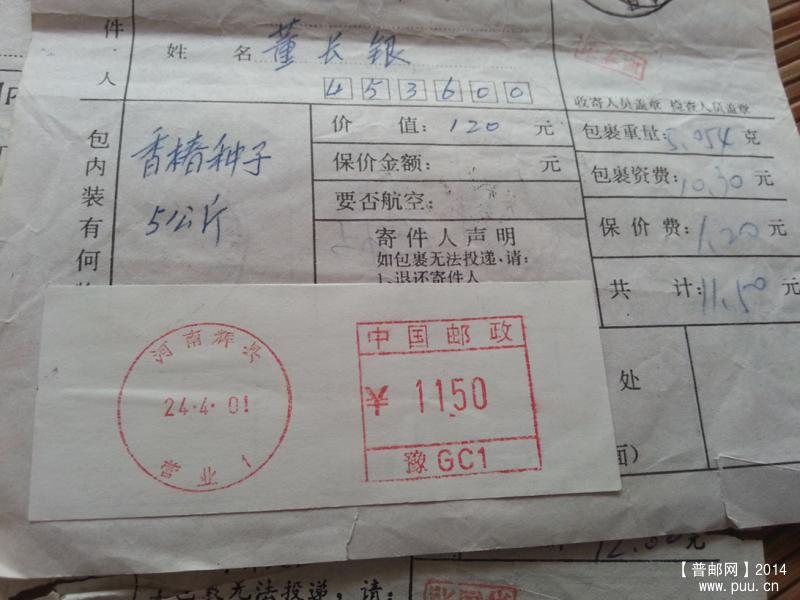 件
人
姓 名 董长银
453600
收寄人员盖章 检查人员盖章
包内装有何
香椿种子
5公斤
价 值: 120 元
保价金额: 元
要否航空:
寄件人声明
如包裹无法投递,请:
1、退还寄件人
包裹重量: 5.054 克
包裹资费: 10.30 元
保价费: 1.20 元
共 计: 11.50 元
处
面)
河南辉县
24.4.01
营业 1
中国邮政
¥ 1150
豫 GC1
12.00元
无法投递,请:
【普邮网】2014
www.puu.cn